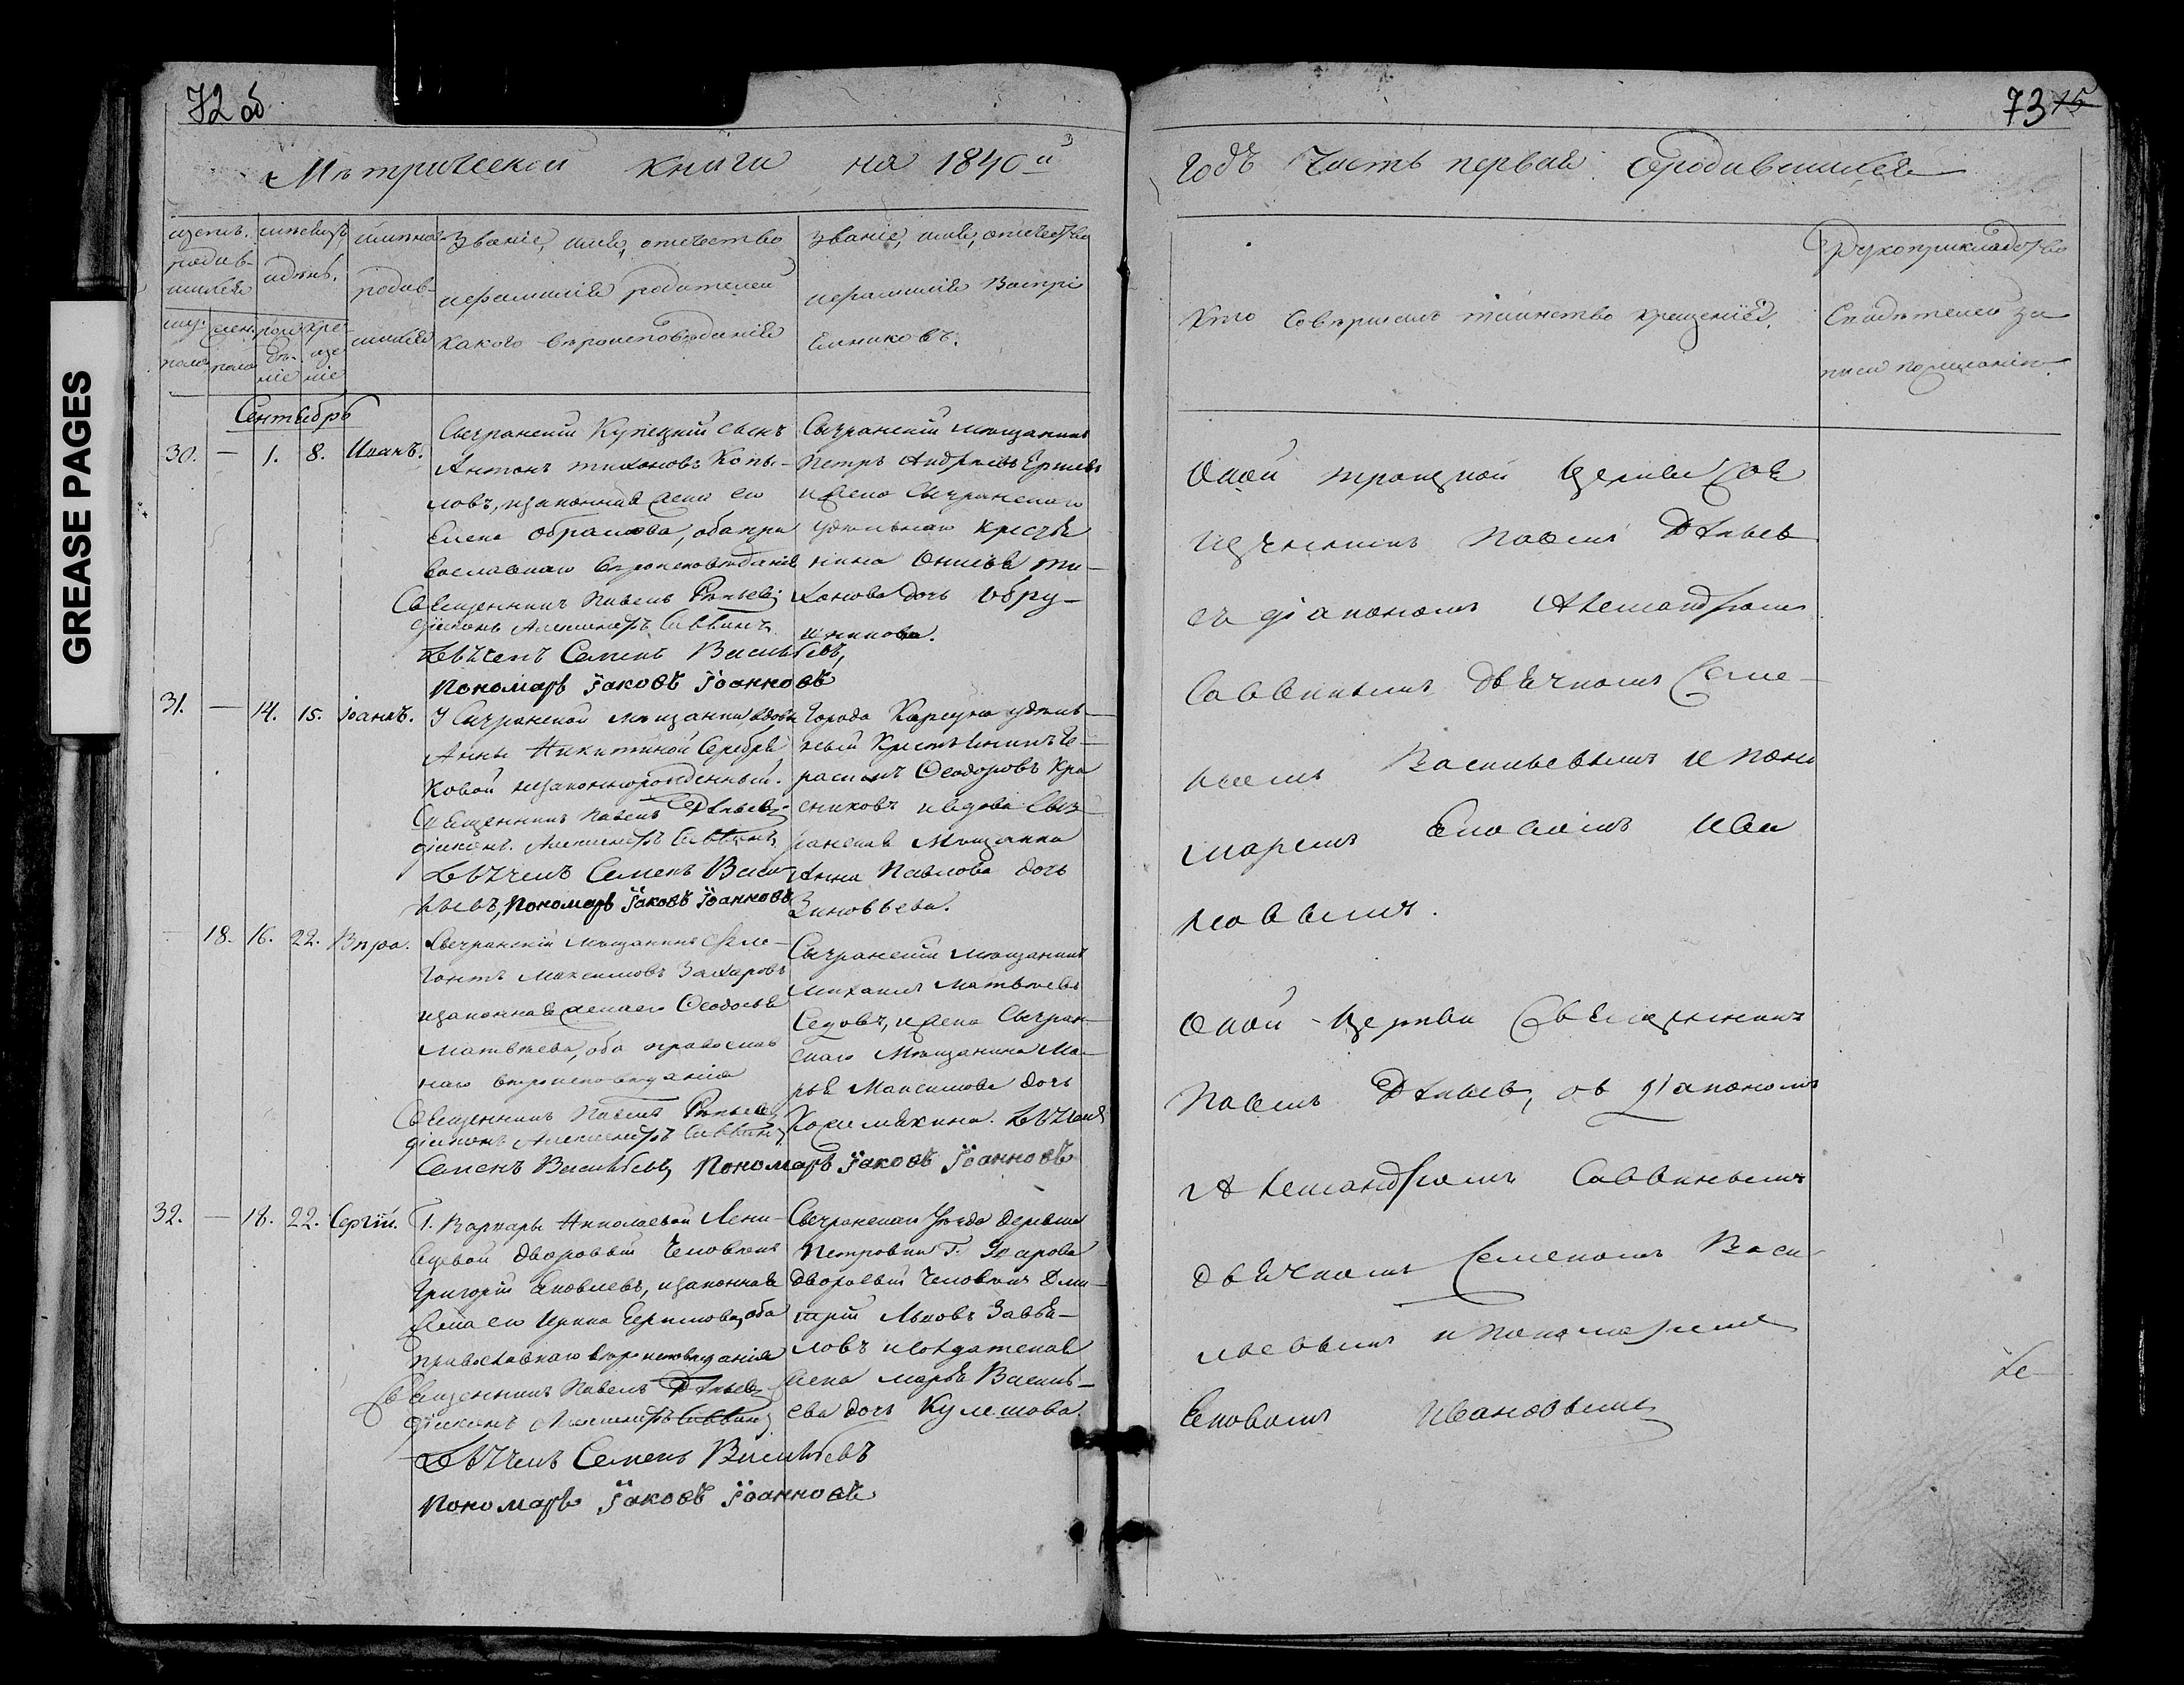 72 об
Метрической книги на 1840й
щетъ родив-шихся
муж. пола
жен. пола
месяцъ и день
рож-де-ніе
кре-ще-ніе
имена родив-шихся
Званіе, имя, отечество
и фамилія родителей
какого вероисповеданія
Званіе, имя, отечество
и фамилія Воспрі
емниковъ.
Сентябрь
30. — 1. 8. Иванъ.
Сызранскій Купецкій сынъ
Антонъ тихоновъ Копы-
ловъ, изаконная жена его
Елена , оба пра
вославнаго вероисповеданія
Священникъ Павелъ
діаконъ Александръ Саввинъ
Дьячекъ Семенъ Васильевъ,
Пономарь Іаковъ Іоанновъ
Сызранскій мещанинъ
Петръ Андреевъ
и жена Сызранскаго
удельнаго крестья
нина ти-
хонова дочь Обру-
шникова.
31. — 14. 15. Іоаннъ.
У Сызранской мещанки вдовы
Анны Никитиной Серебря
ковой незаконнорожденный.
Священникъ Павелъ
діаконъ Александръ Саввинъ
Дьячекъ Семенъ Васи-
льевъ, Пономарь Іаковъ Іоанновъ
Города Карсуна удель-
ный Крестьянинъ Ге-
расимъ Феодоровъ Кра
сниковъ и вдова Сыз-
ранская Мещанка
Анна Павлова дочь
Зиновьева.
— 18. 16. 22. Вера.
Сызранскій Мещанинъ Фле-
гонтъ Максимовъ Захаровъ
изаконная жена его Феодосья
Матвеева, оба православ
наго вероисповеданія
Священникъ Павелъ
діаконъ Александръ Саввинъ
Семенъ Васильевъ, Пономарь Іаковъ Іоанновъ
Сызранскій мещанинъ
Михаилъ Матвеевъ
Седовъ, и жена Сызран-
скаго Мещанина Ма-
рья Максимова дочь
Кожемякина. Дьячекъ
32. — 18. 22. Сергій.
Г. Варвары Николаевой Лени-
вцевой дворовый Человекъ
Григорій Яковлевъ, изаконная
жена его Ирина , оба
православнаго вероисповеданія
Священникъ Павелъ
діаконъ Александръ Саввинъ
Дьячекъ Семенъ Васильевъ
Пономарь Іаковъ Іоанновъ
Сызранскаго Уезда деревни
Петровки Г.
дворовый Человекъ Дми-
трій Львовъ Завья-
ловъ и солдатская
жена марья Василь-
ева дочь Кулешова.
73 75
годъ Часть первая Ородившихся
Кто Совершалъ таинство крещенія.
Рукоприкладство
Свидетелей за
писи по желанію.
Оной троицкой Церкви Свя
щенникъ Павелъ
съ діакономъ Александромъ
Саввинымъ дьячкомъ Семе-
номъ Васильевымъ и поно
маремъ Яковомъ Ива
новымъ.
Оной Церкви Священникъ
Павелъ , съ діакономъ
Александромъ Саввинымъ
дьячкомъ Семеномъ Васи-
льевымъ и пономаремъ
Яковомъ Ивановымъ
GREASE PAGES